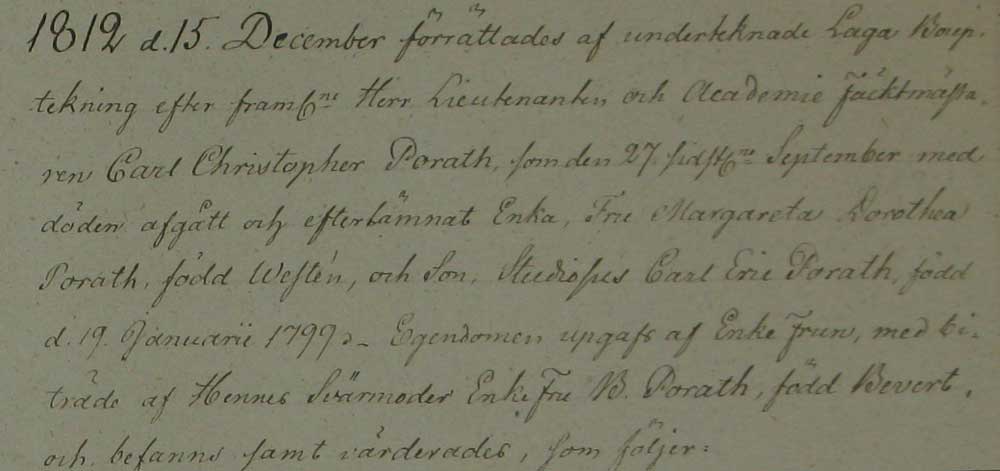 1812 d. 15. December förrättades af underteknade Laga Boup-
tekning efter framl:ne Herr Lieutenanten och Academie Fäcktmästa-
ren Carl Christopher Porath, som den 27. sidstl:ne September med
döden afgått och efterlämnat Enka, Fru Margareta Dorothea
Porath, född Westén, och Son, Studiosus Carl Eric Porath, född
d. 19. Januarii 1799. - Egendomen upgafs af Enke Frun, med bi-
träde af Hennes Svärmoder Enke Fru B. Porath, född Bevert,
och befanns samt värderades, som följer: